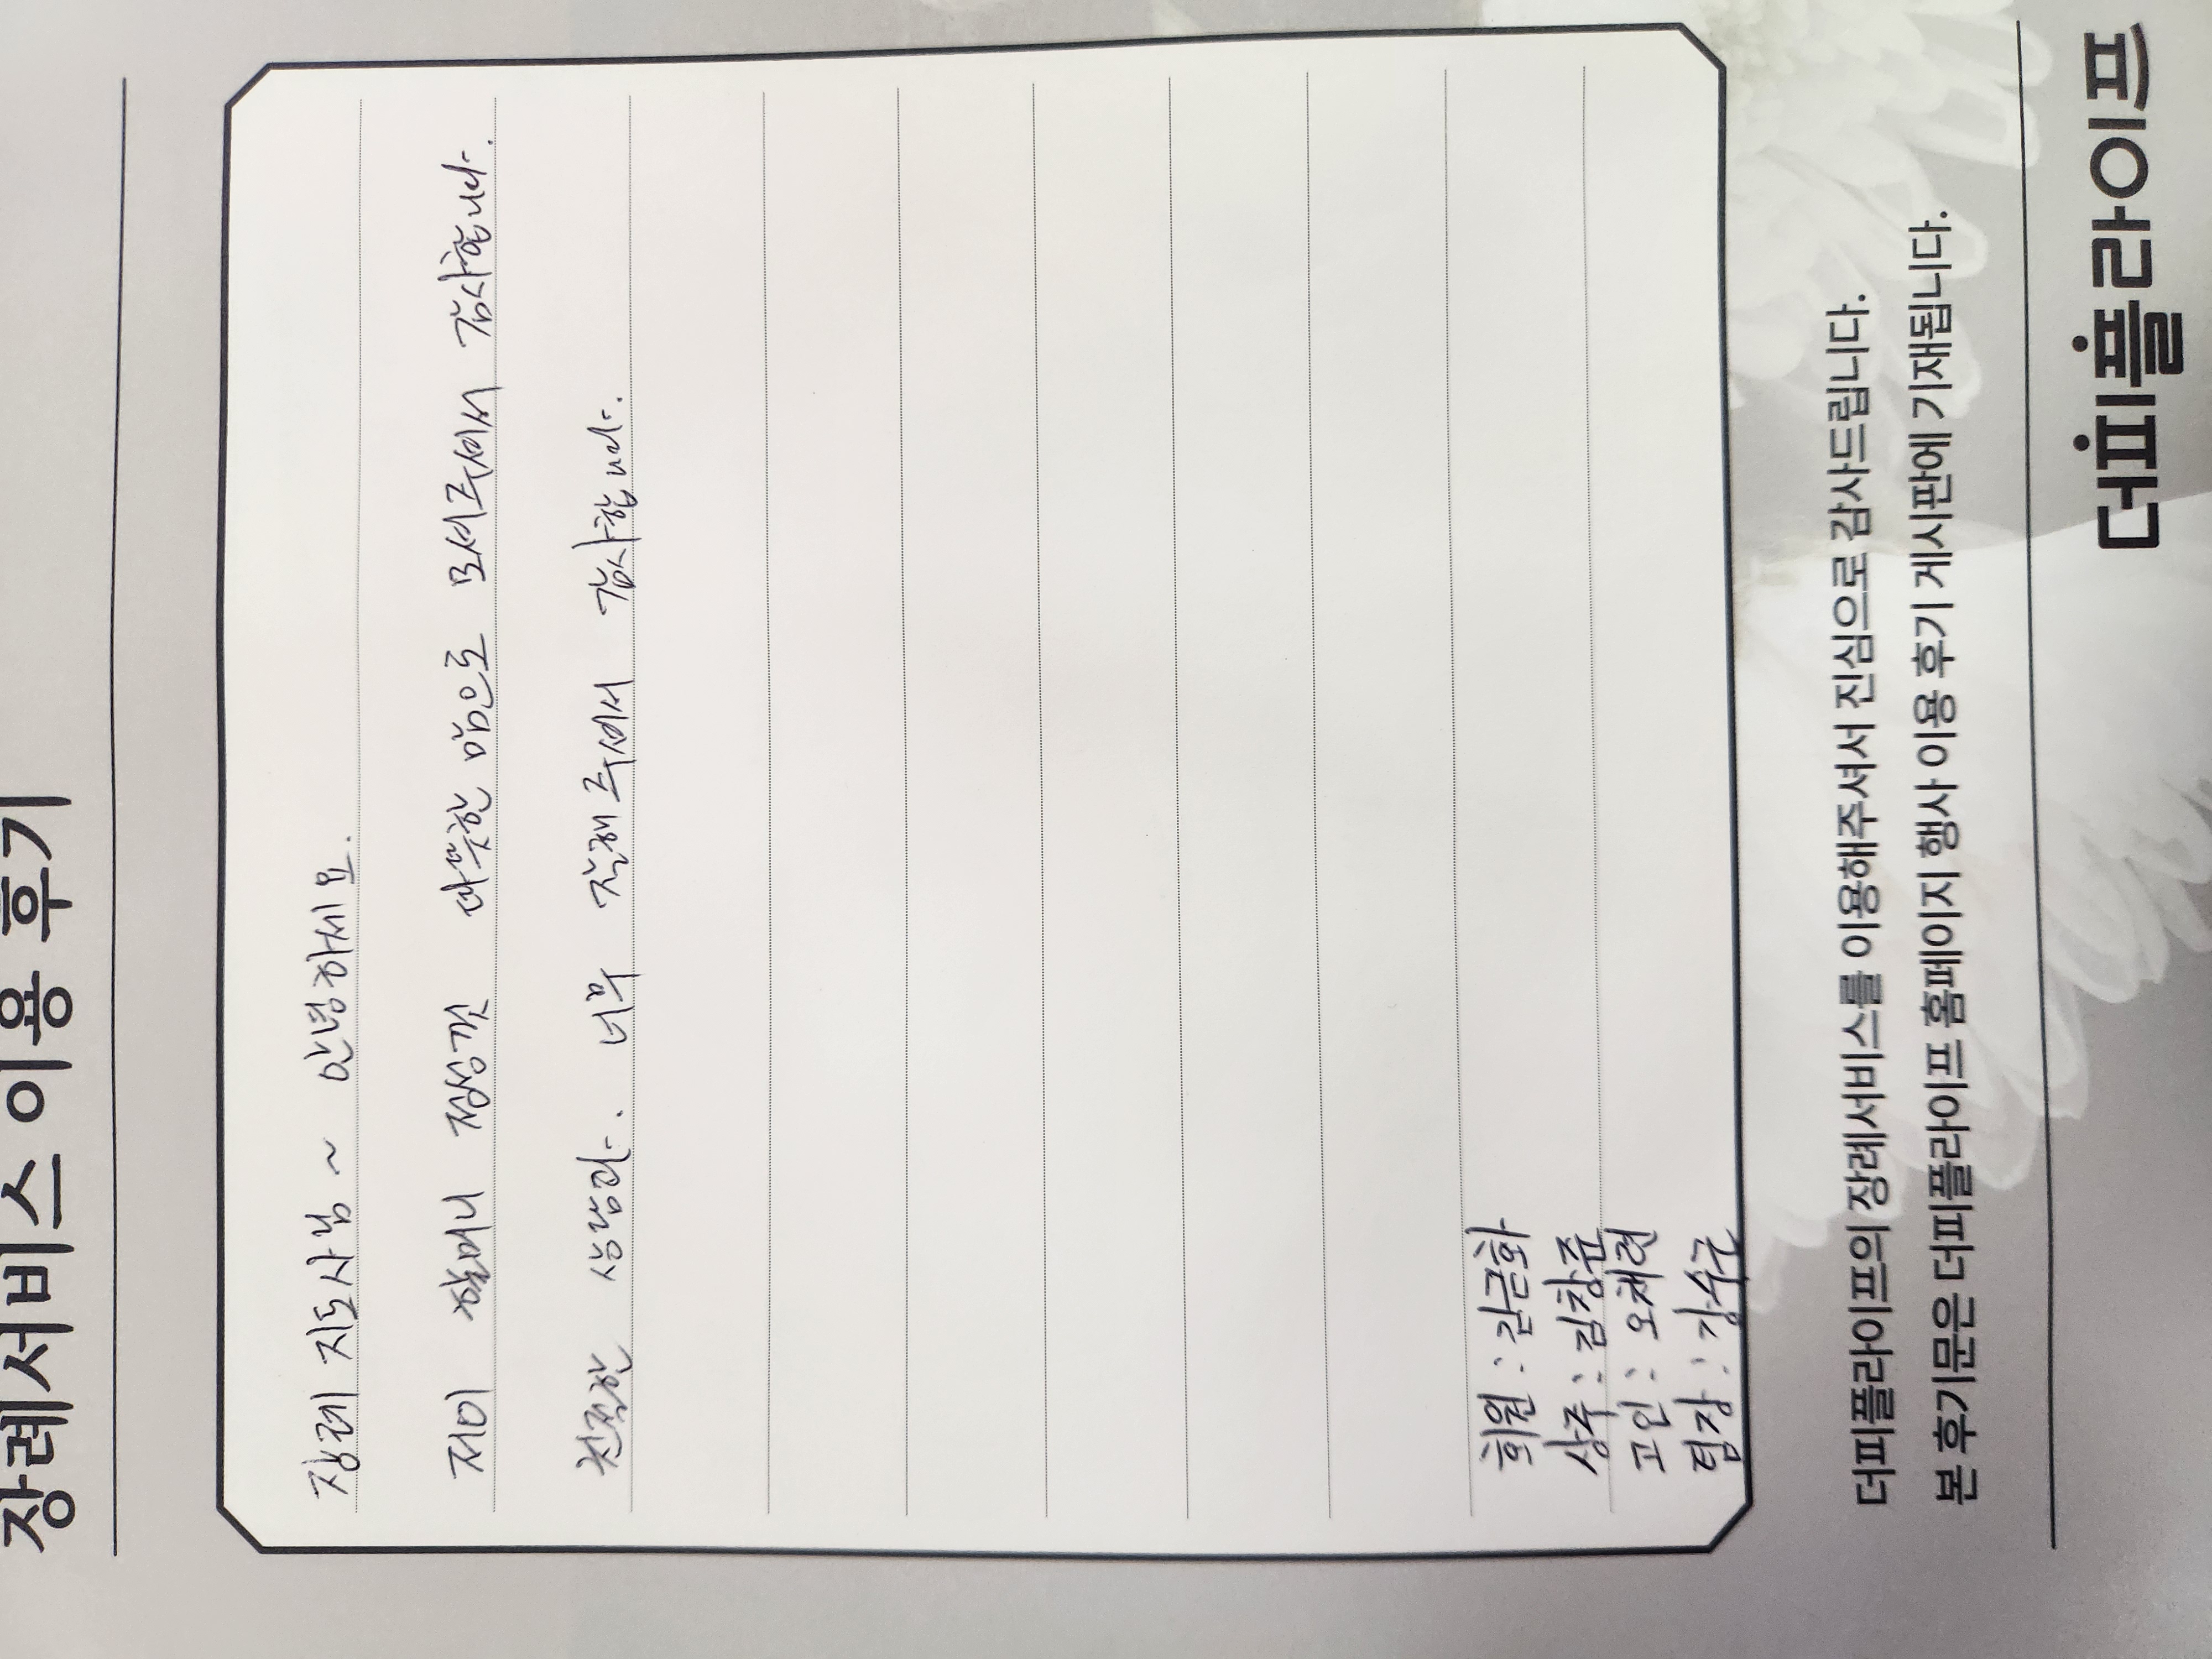 장례서비스 이용 후기
장례 지도사님 ~ 안녕하세요.
저이 할머니 정성껏 따뜻한 맘으로 모셔주셔서 감사합니다.
친절한 상담과. 너무 잘해주셔서 감사합니다.
회원 : 김근화
상주 : 김창준
고인 : 오채련
팀장 : 강수근
더피플라이프의 장례서비스를 이용해주셔서 진심으로 감사드립니다.
본 후기문은 더피플라이프 홈페이지 행사 이용 후기 게시판에 기재됩니다.
더피플라이프